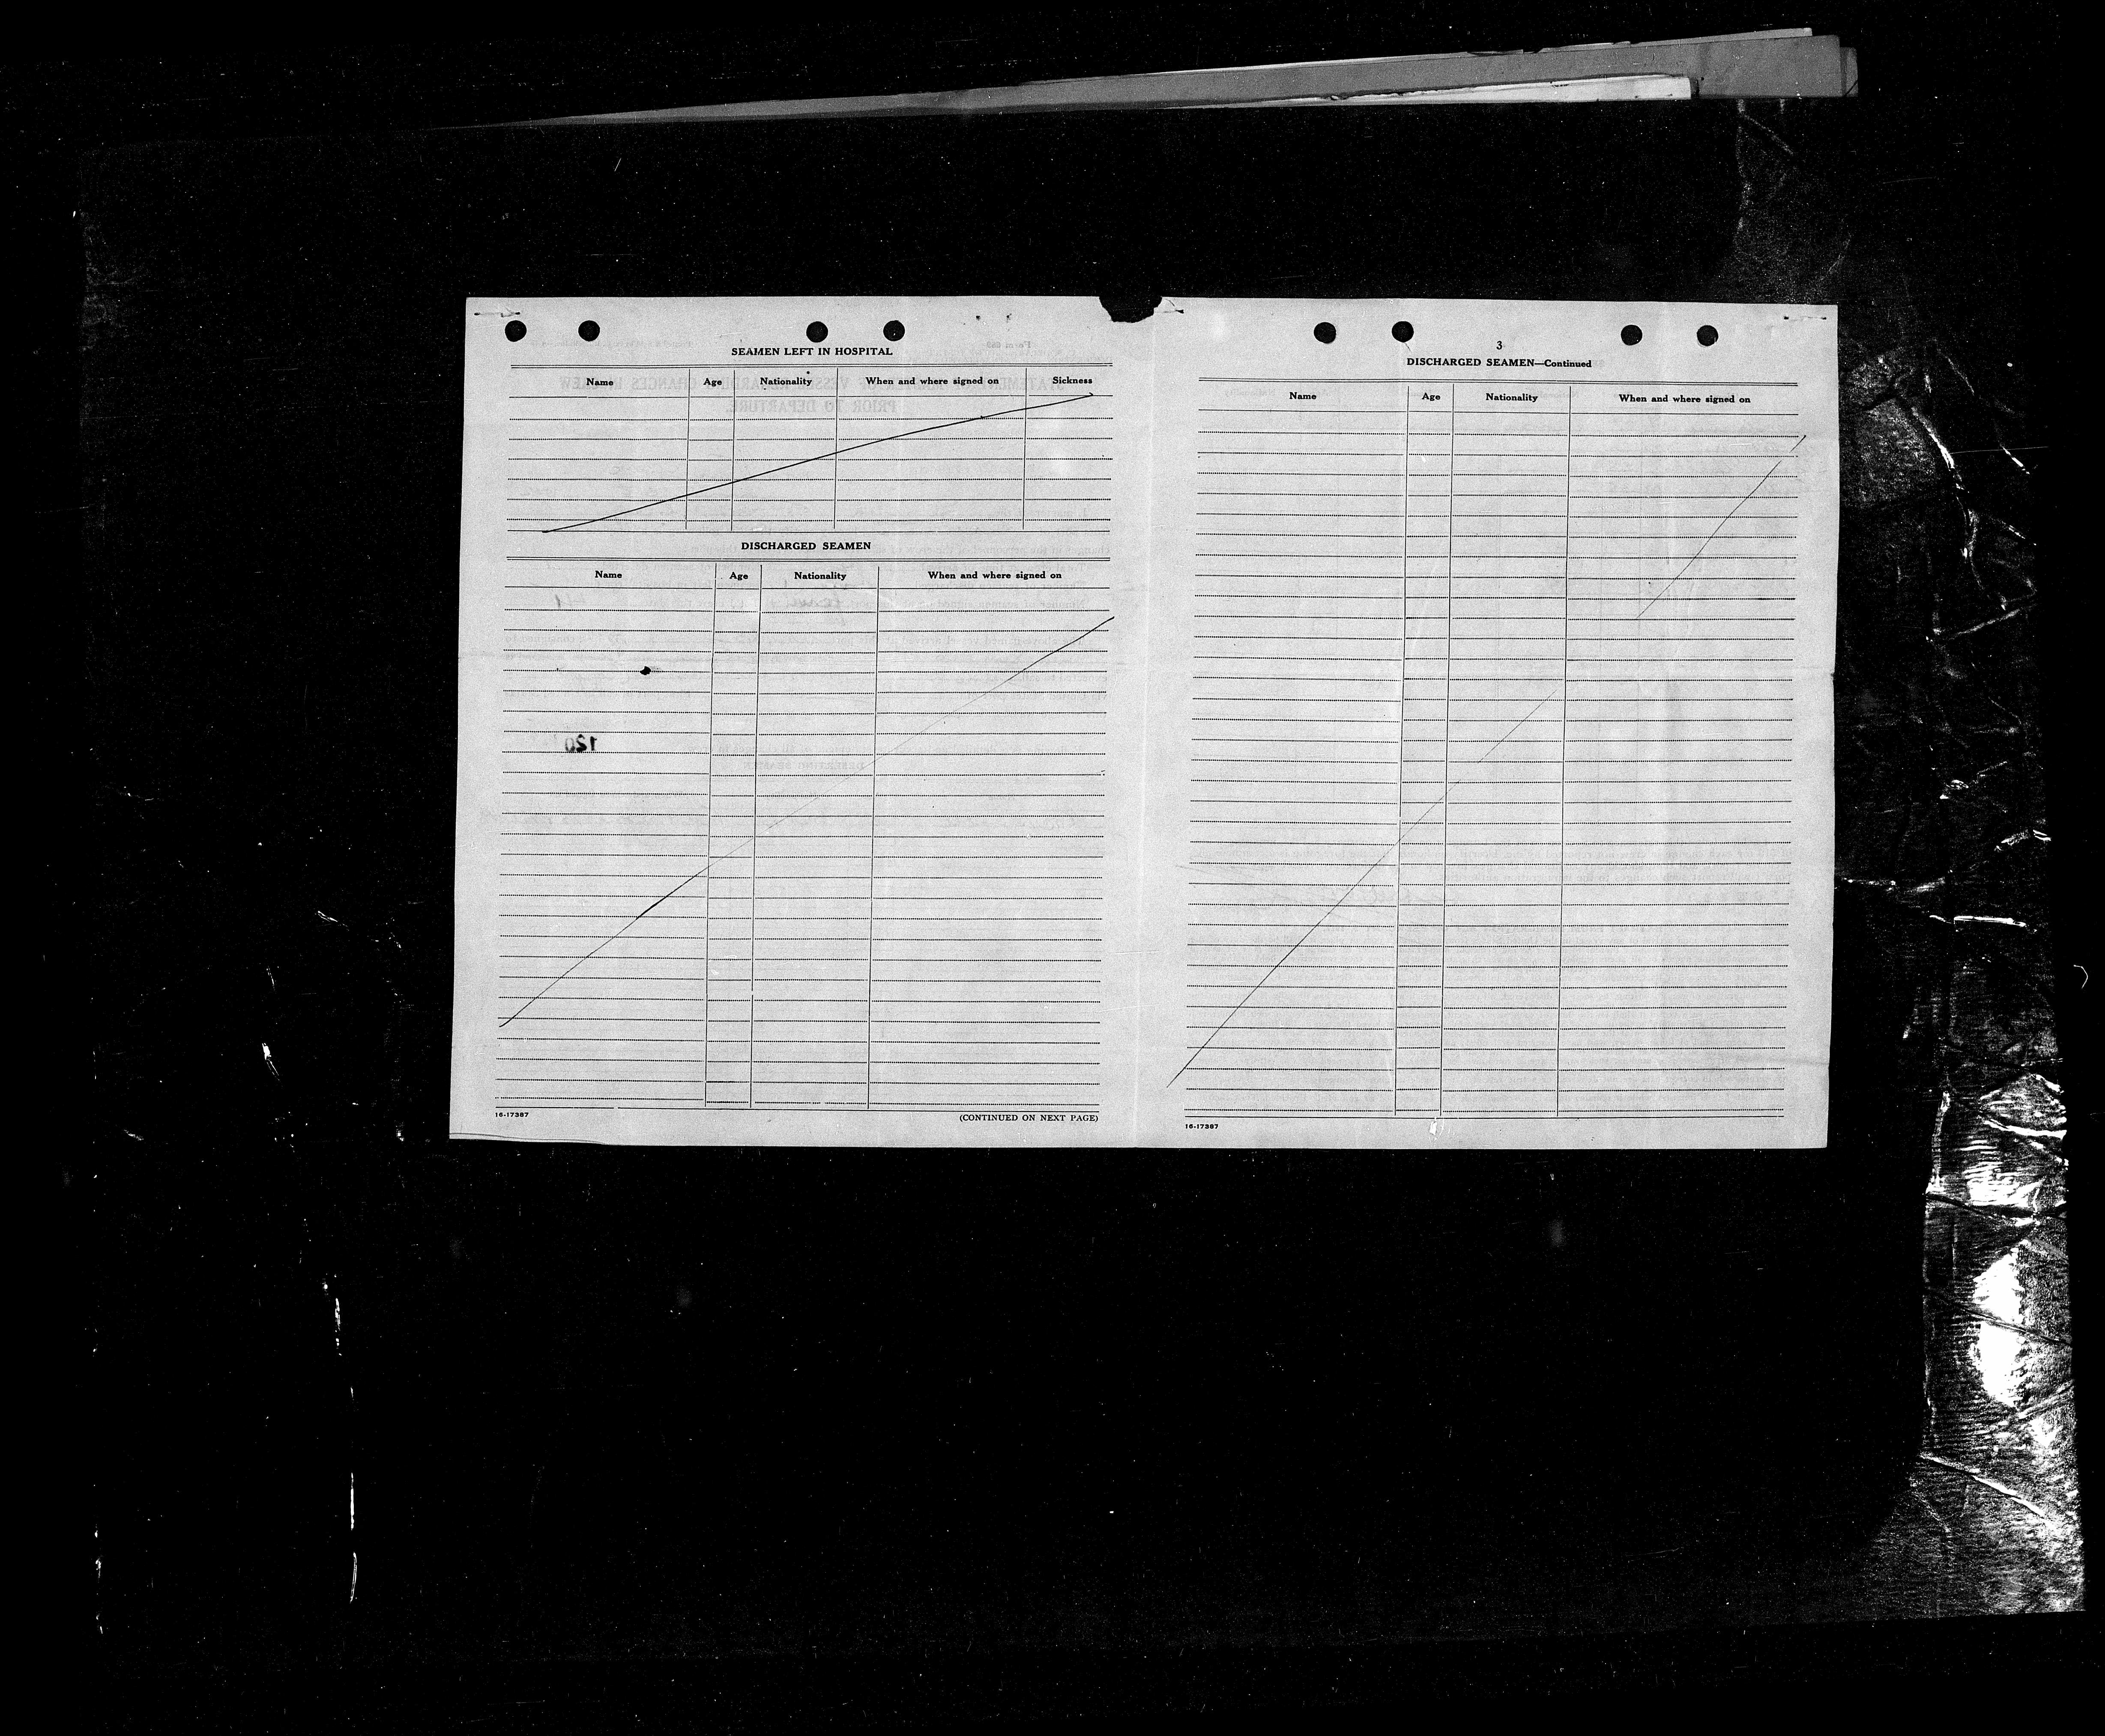 SEAMEN LEFT IN HOSPITAL
Name Age Nationality When and where signed on Sickness
DISCHARGED SEAMEN
Name Age Nationality When and where signed on
120
16-17387
(CONTINUED ON NEXT PAGE)
3
DISCHARGED SEAMEN—Continued
Name Age Nationality When and where signed on
16-17387